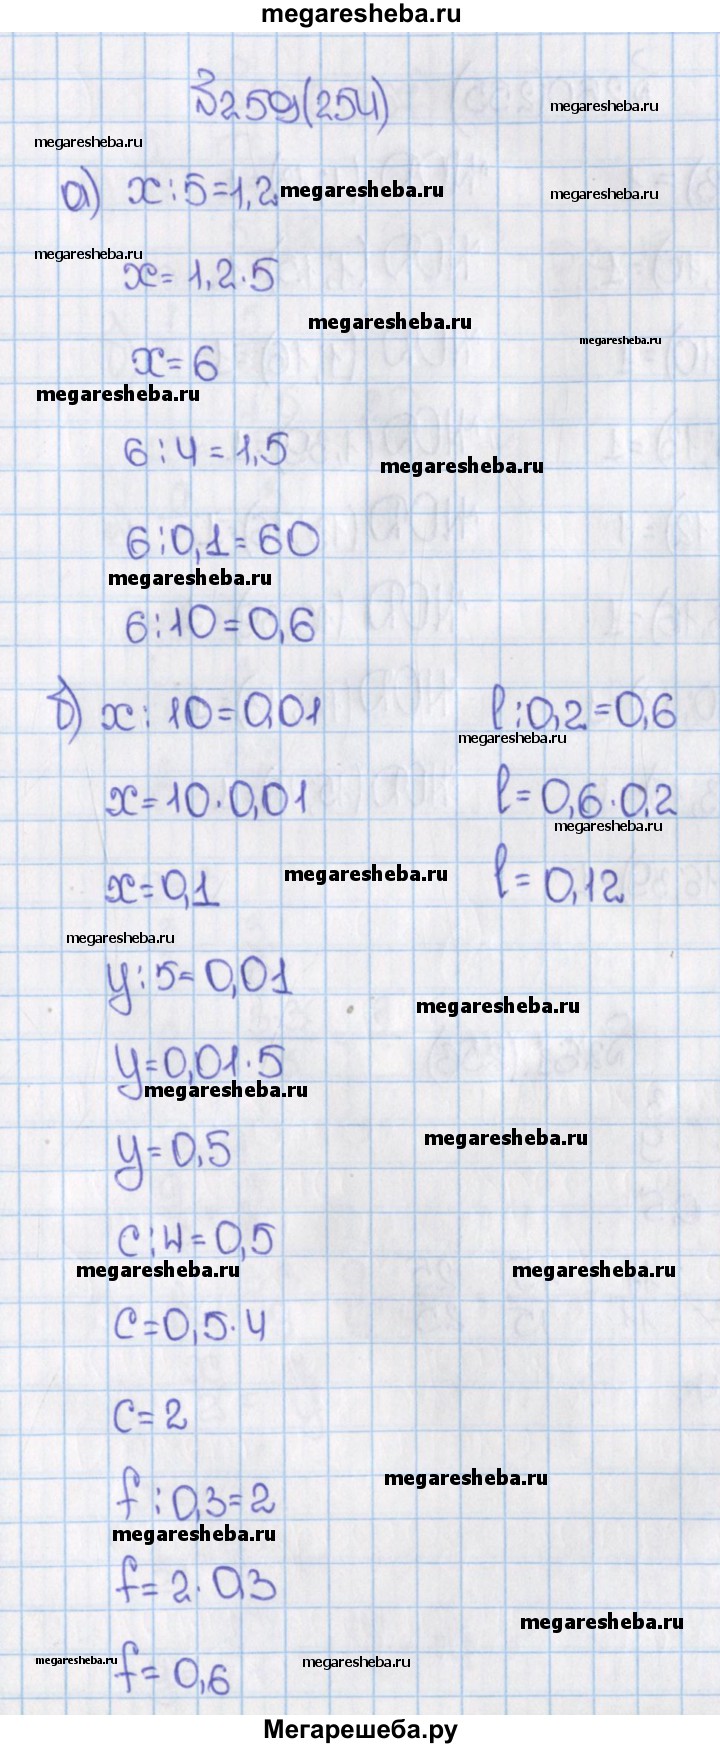 megaresheba.ru
№259(254)
megaresheba.ru
megaresheba.ru
а) x:5=1,2
megaresheba.ru
megaresheba.ru
megaresheba.ru
x=1,2·5
megaresheba.ru
megaresheba.ru
x=6
megaresheba.ru
6:4=1,5
megaresheba.ru
6:0,1=60
megaresheba.ru
6:10=0,6
б) x:10=0,01
x=10·0,01
x=0,1
megaresheba.ru
megaresheba.ru
y:5=0,01
megaresheba.ru
y=0,01·5
megaresheba.ru
y=0,5
megaresheba.ru
c:4=0,5
megaresheba.ru
megaresheba.ru
c=0,5·4
c=2
megaresheba.ru
f:0,3=2
megaresheba.ru
f=2·0,3
megaresheba.ru
f=0,6
megaresheba.ru
megaresheba.ru
l:0,2=0,6
megaresheba.ru
l=0,6·0,2
megaresheba.ru
l=0,12
Мегарешеба.ру